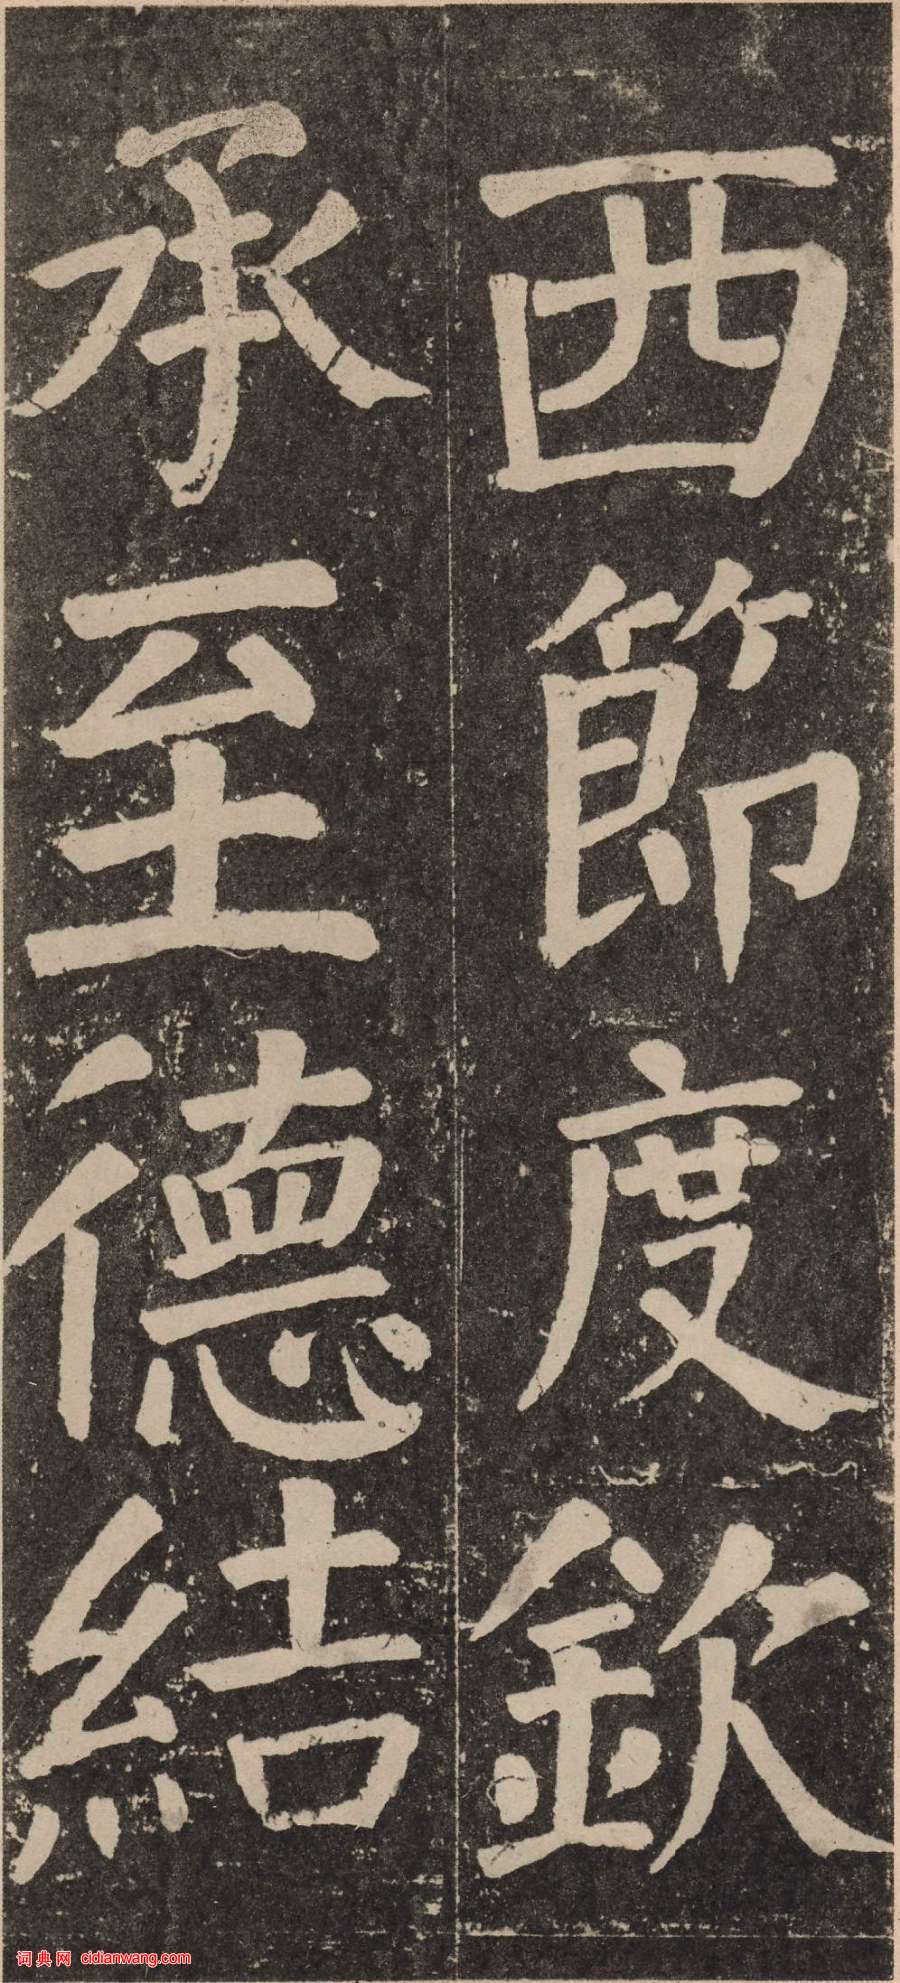 西節度欽
承至德結
词典网 cidianwang.com